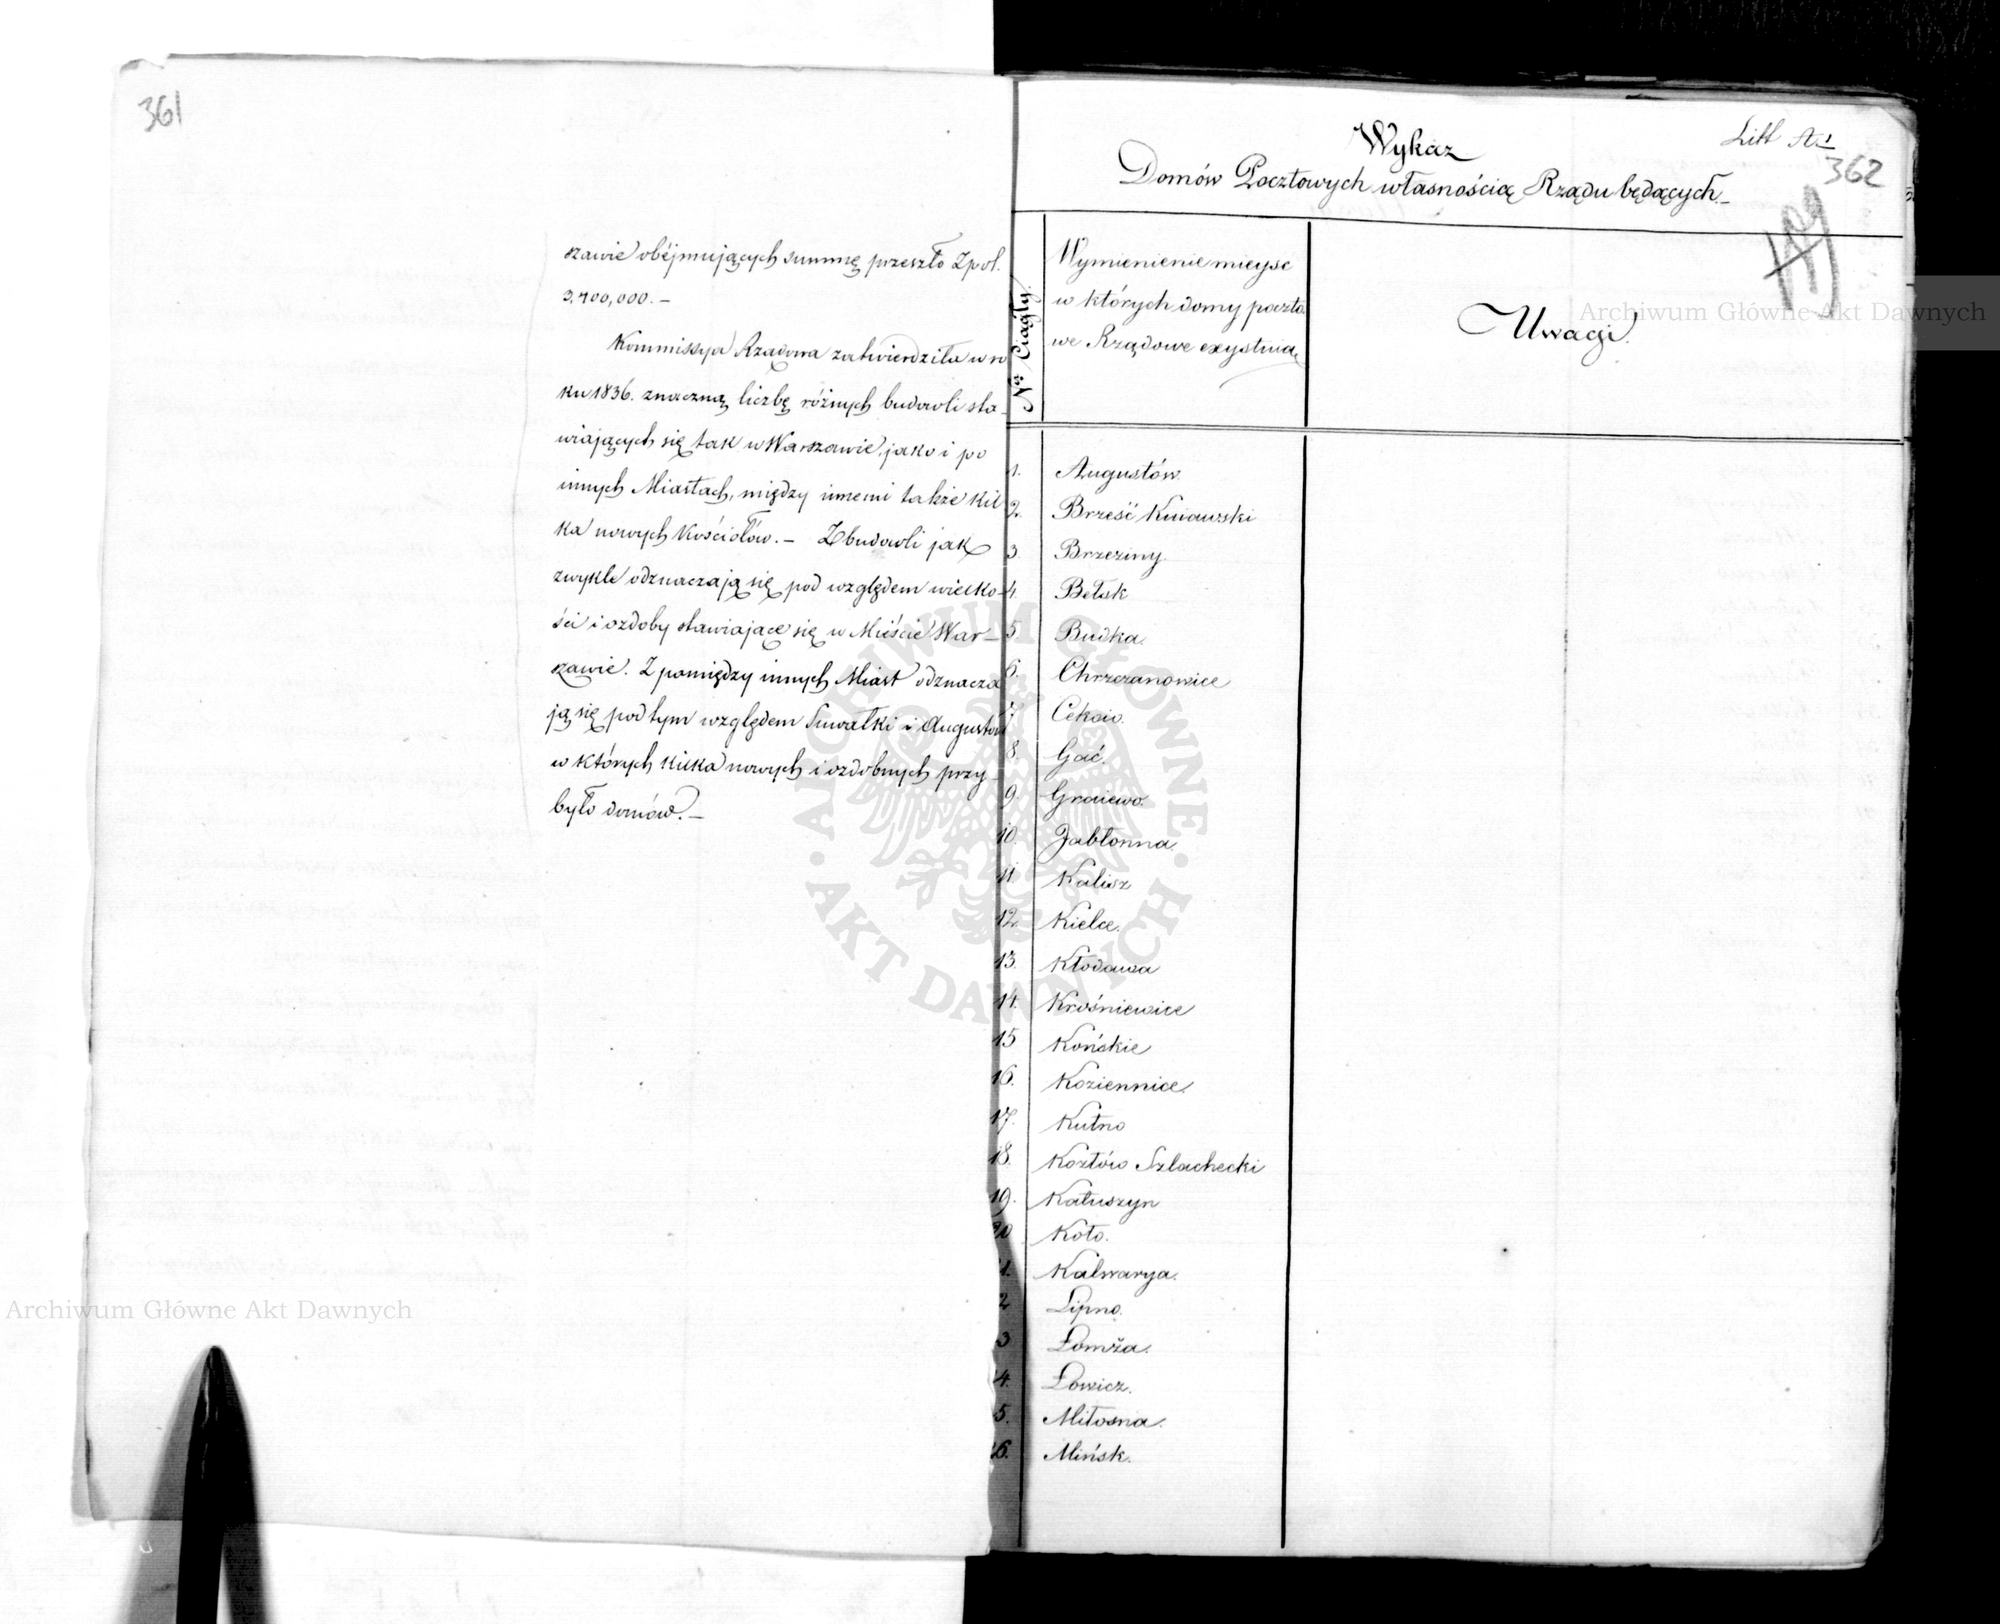 361
szawie obéjmujących summę przeszło Zpol.
3,700,000. —
Kommissya Rządowa zatwierdziła w ro
ku 1836. znaczną liczbę różnych budowli sta-
wiających się tak w Warszawie, jako i po
innych Miastach, między innemi także kil
ka nowych Kościołów. — Z budowli jak
zwykle odznaczają się pod względem wielko-
ści i ozdoby stawiające się w Mieście War-
szawie. Z pomiędzy innych Miast odznacza
ją się pod tym względem Suwałki i Augustów
w których kilka nowych i ozdobnych przy-
było domów. —
Litt A1
362
Wykaz
Domów Pocztowych własnością Rządu będących. —
Nr Ciągły.
Wymienienie mieysc
w których domy poczto
we Rządowe exystuią
Uwagi.
1. Augustów
2. Brześć Kuiawski
3. Brzeziny
4. Bełsk
5. Budka
6. Chrzczanowice
7. Ceków.
8. Gać.
9. Graiewo.
10. Jabłonna.
11. Kalisz
12. Kielce.
13. Kłodawa
14. Krośniewice
15 Końskie
16. Koziennice.
17. Kutno
18. Kozłów Szlachecki
19. Kałuszyn
20 Koło.
1. Kalwarya.
2 Lipno.
3 Łomża.
4. Łowicz.
5. Miłosna.
26. Mińsk.
Archiwum Główne Akt Dawnych
Archiwum Główne Akt Dawnych
ARCHIWUM GŁÓWNE
AKT DAWNYCH